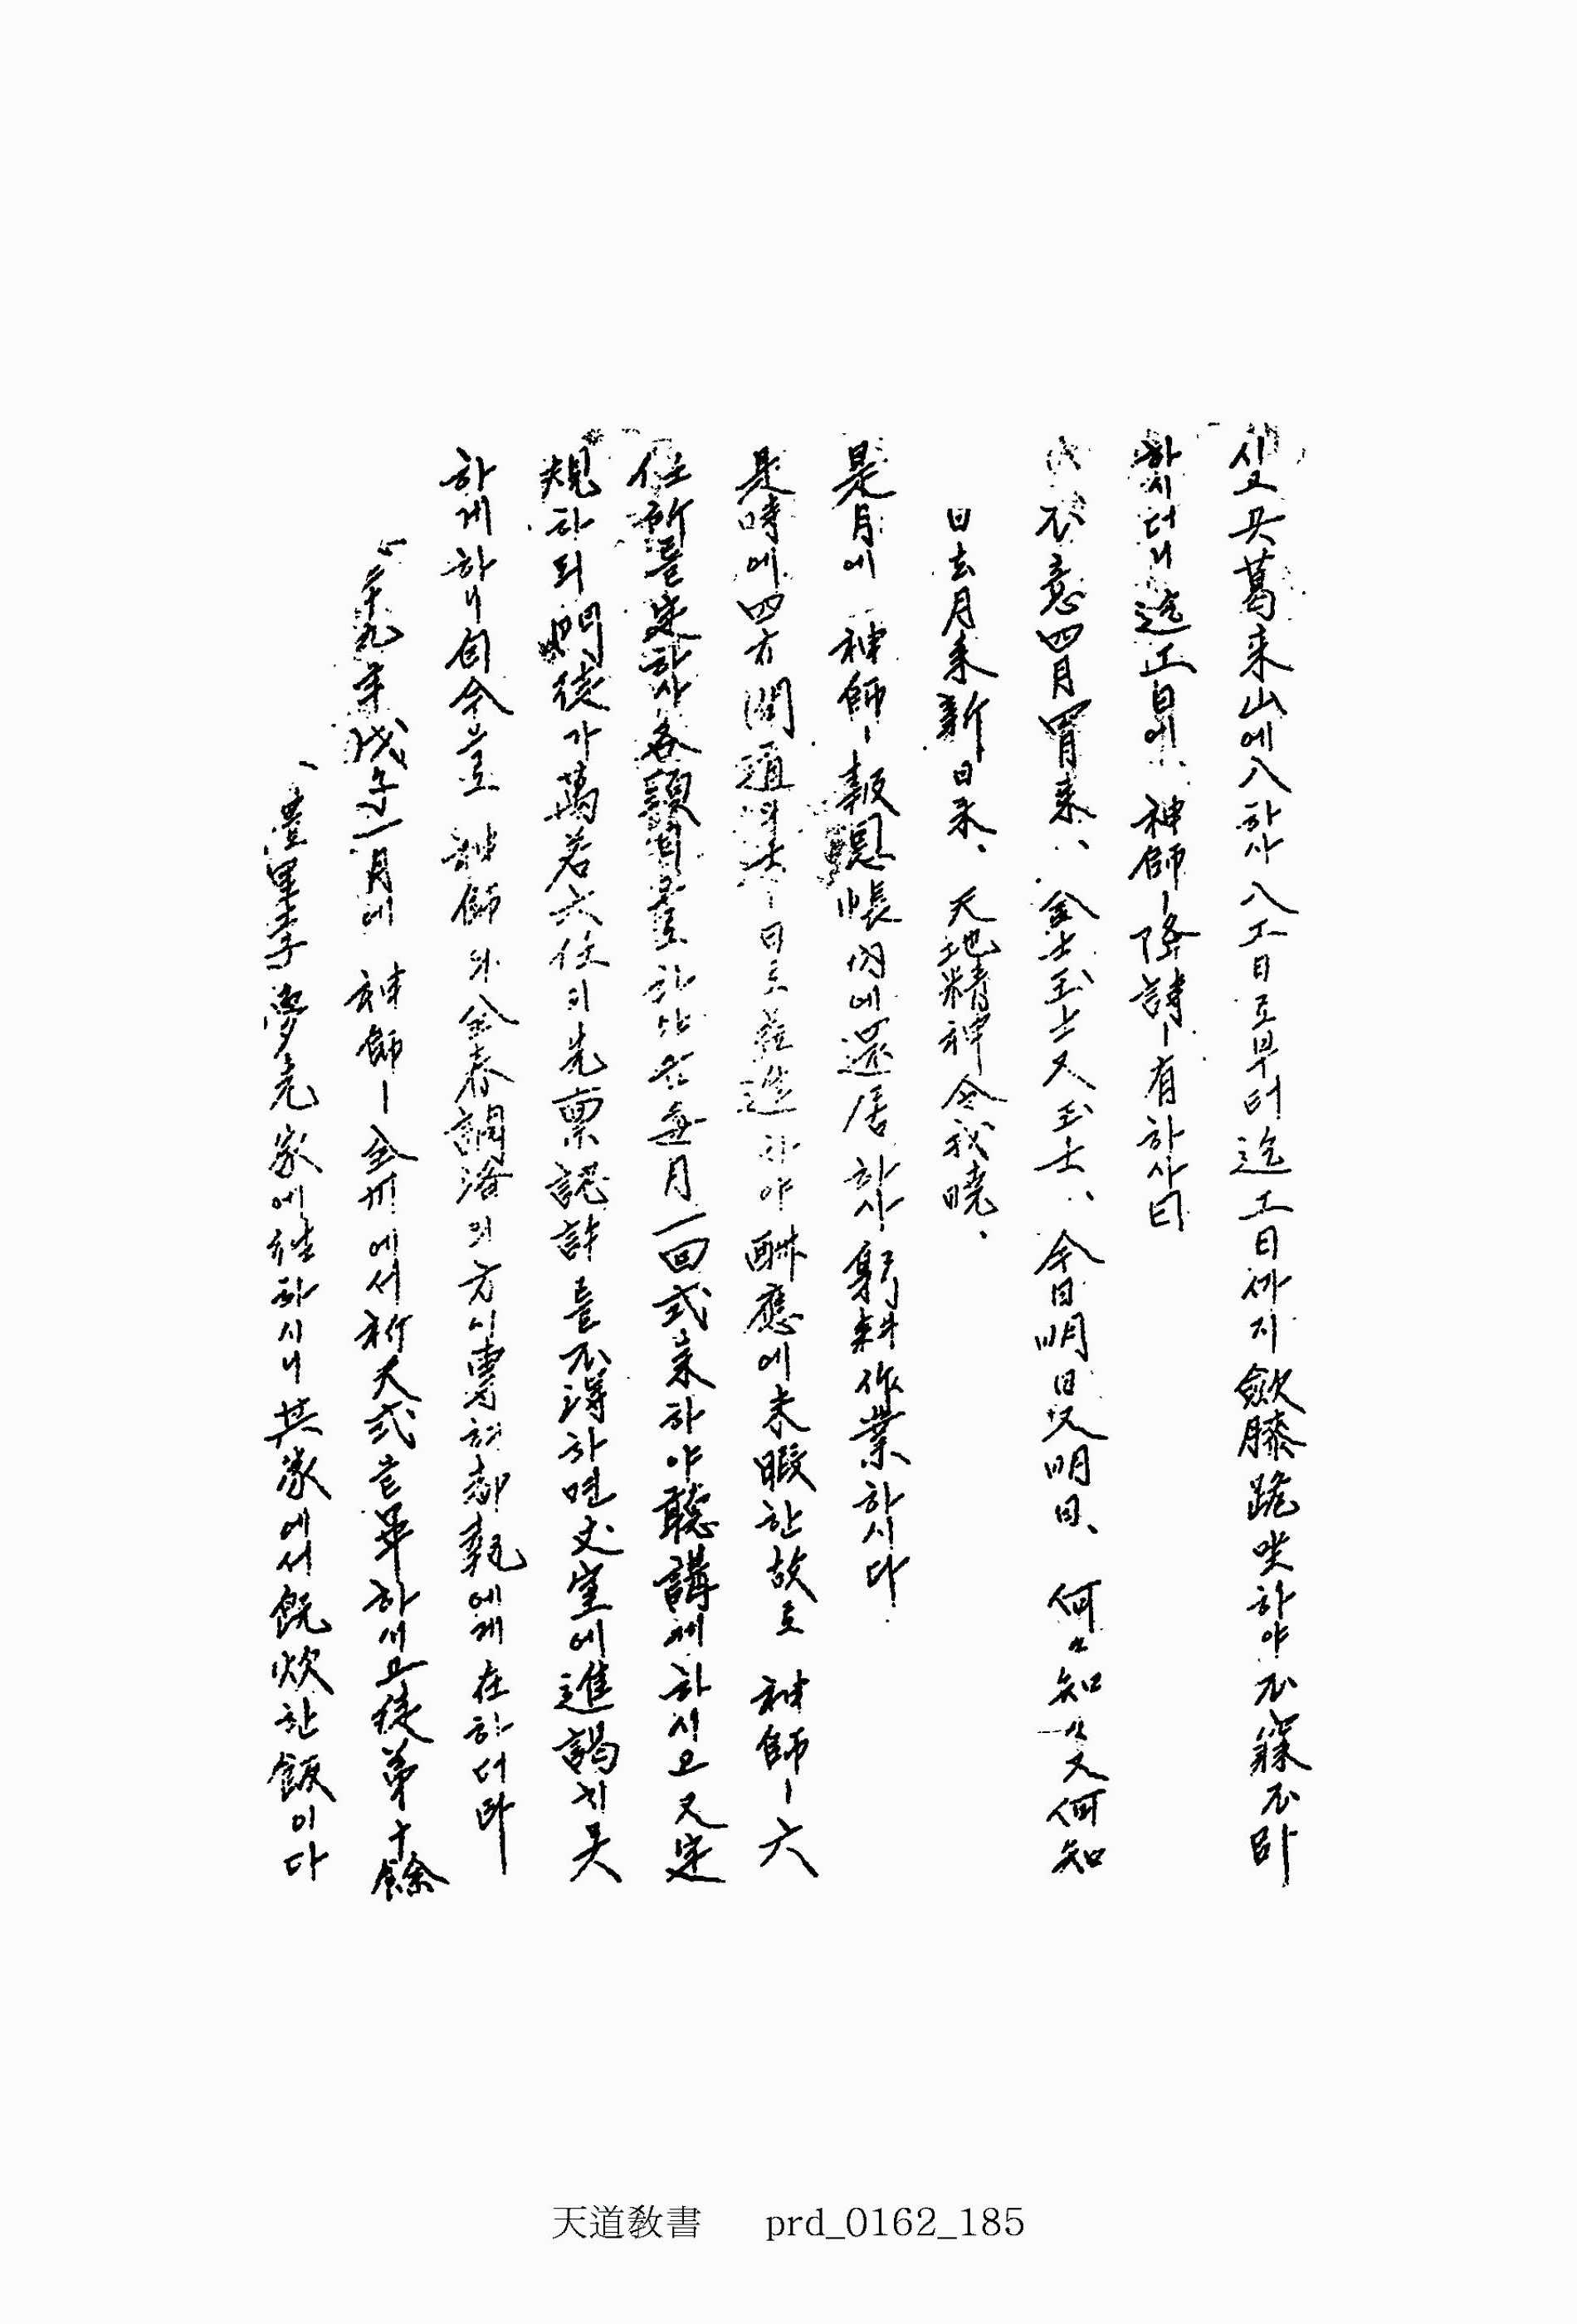 시고 又 葛來山에 入하사 入工日로부터 迄工日까지 歛膝跪坐하야 不寐不卧
하시더니 迄工日에 神師ㅣ 降詩ㅣ 有하사 曰
不意四月四月來、金士玉士又玉士、今日明日又明日、何何知知又何知
日去月來新日來、天地精神令我曉、
是月에 神師ㅣ 報恩帳內에 還居하사 躬耕作業하시다
是時에 四方問道의 士ㅣ 日로 益進하야 酬應에 未暇한 故로 神師ㅣ 六
任所를 定하사 各 頭目으로 하야곰 每月 一回式 來하야 聽講케 하시고 又 定
規하되 門徒가 萬若 六任의 先禀認許를 不得하면 丈室에 進謁치 못
하게 하니 自今으로 神師와 接洽의 方이 專혀 都執에게 在하더라
二十九年戊子一月에 神師ㅣ 全州에서 祈天式을 畢하시고 徒弟 十餘
李夢老家에 往하시니 其家에서 旣炊한 飯이다